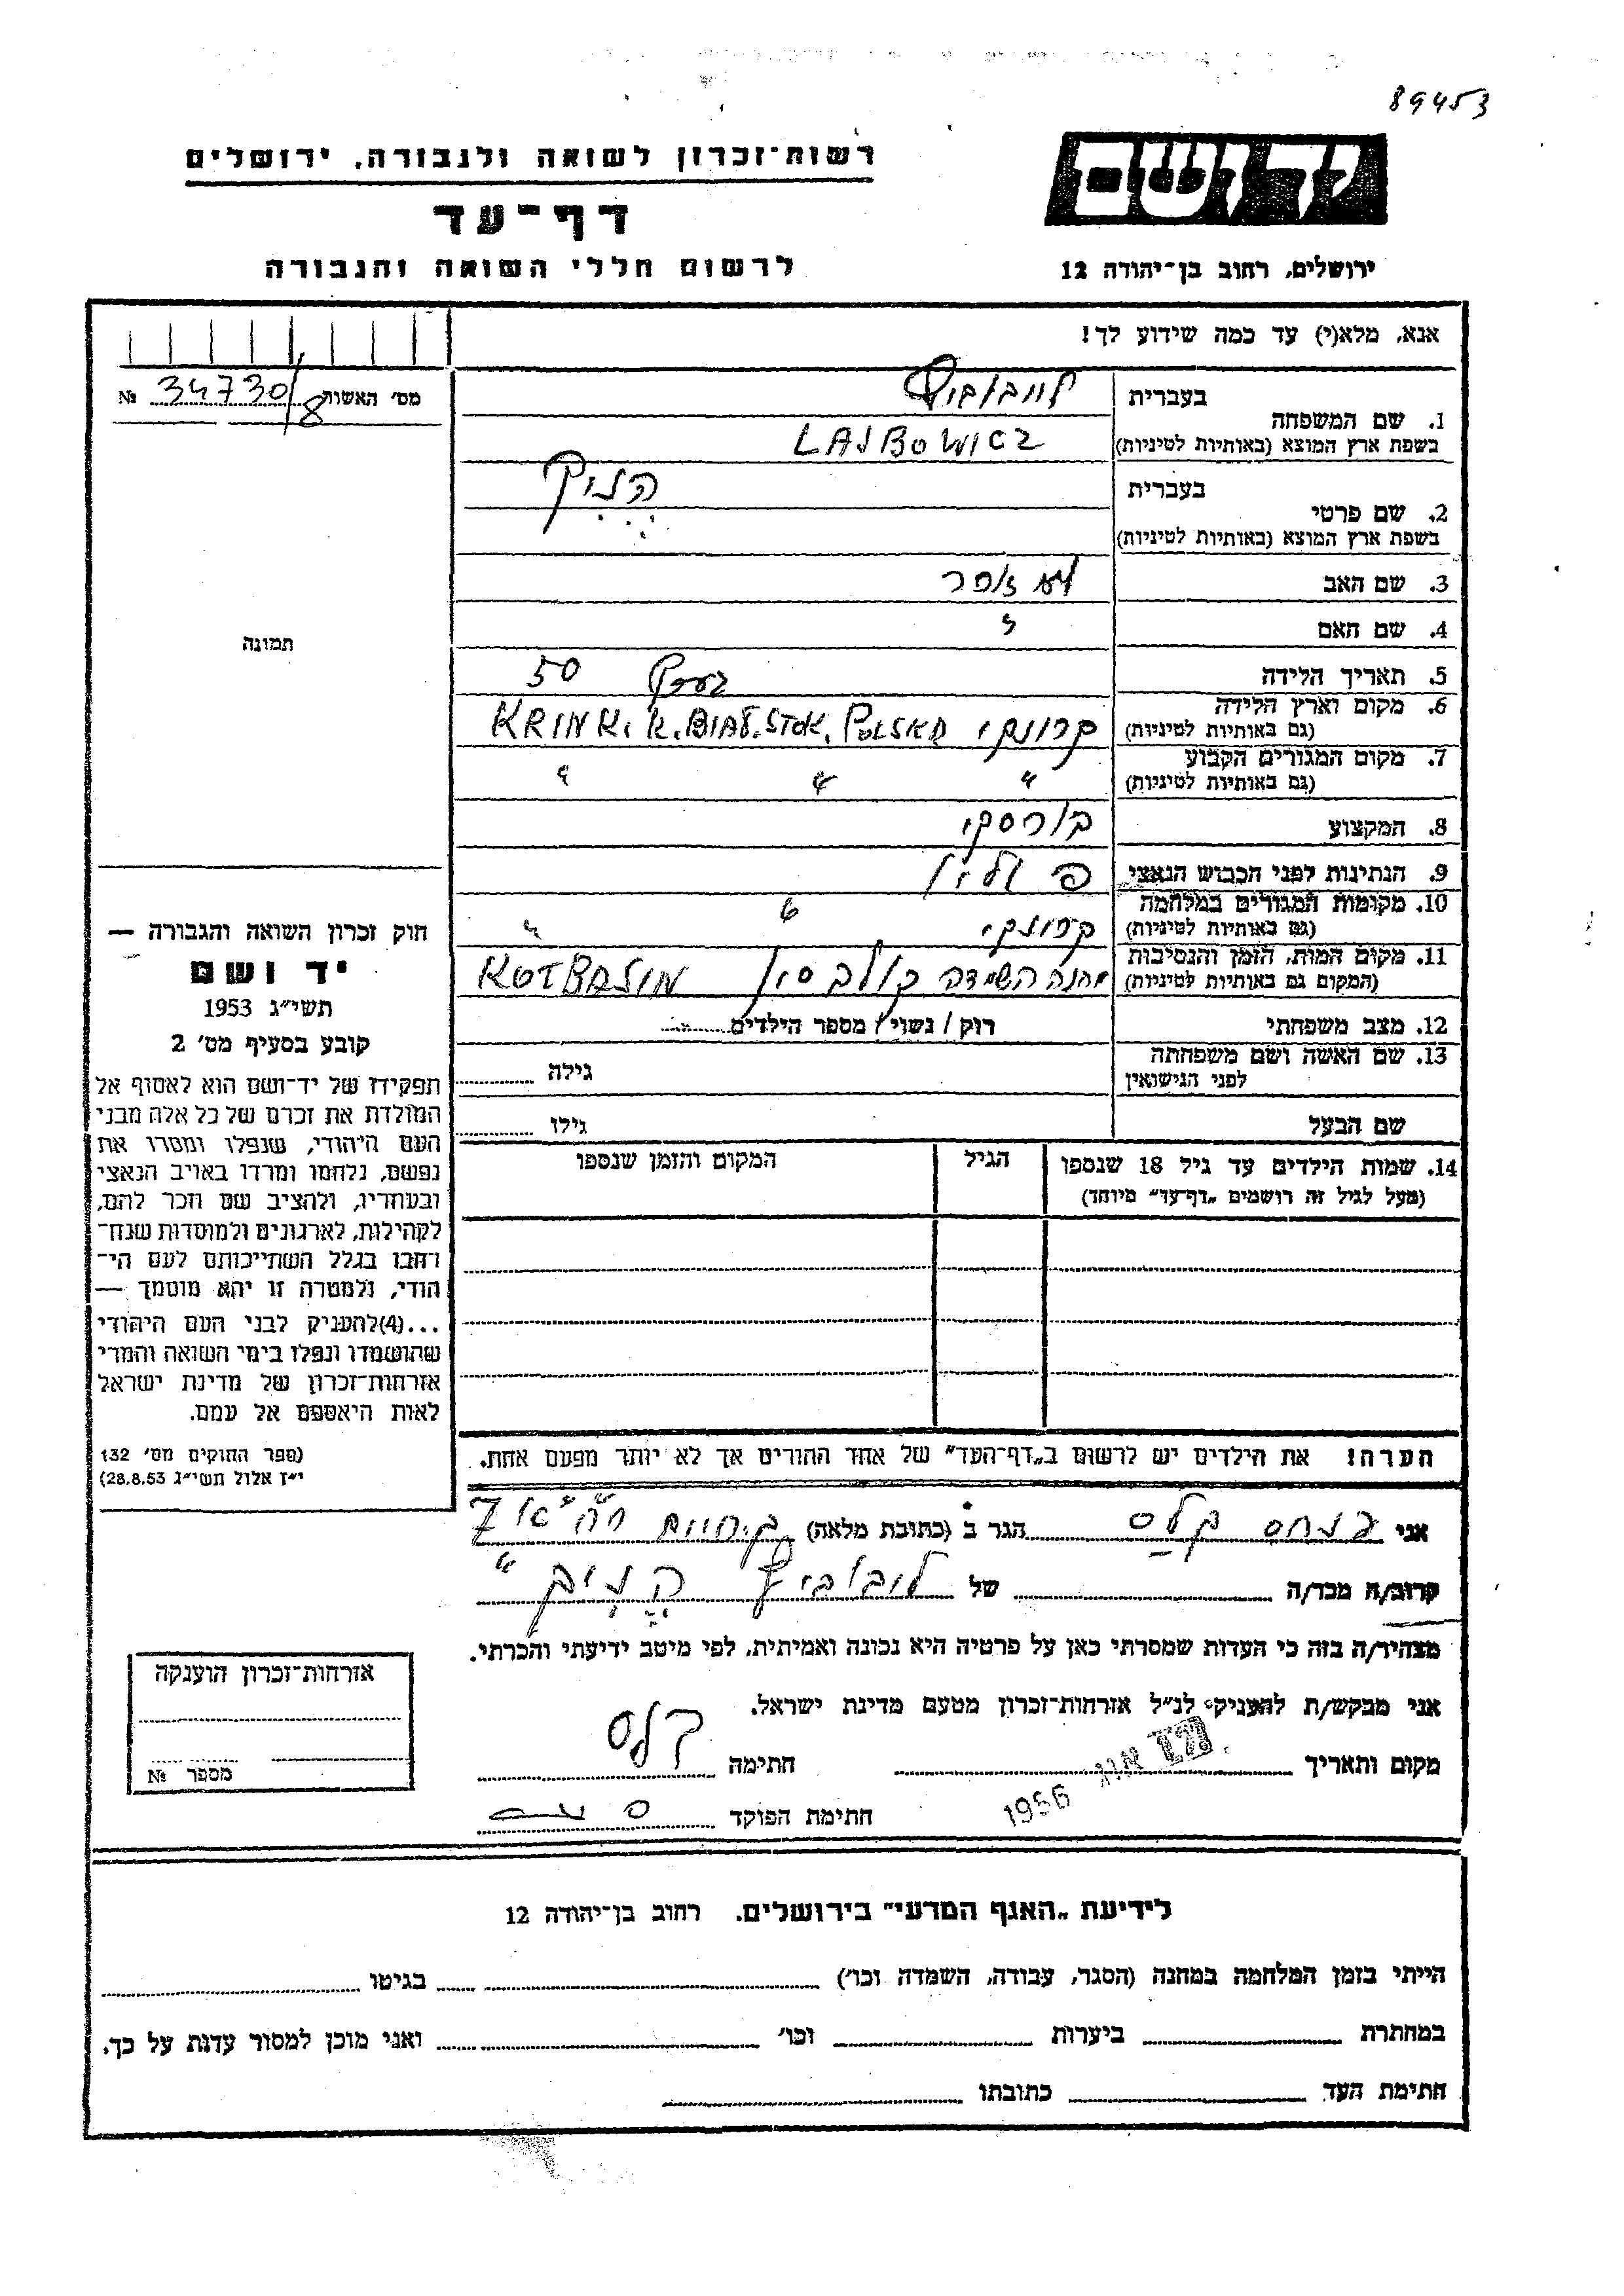 89453
רשות־זכרון לשואה ולגבורה, ירושלים
יד ושם
דף־עד
לרשום חללי השואה והגבורה
ירושלים, רחוב בן־יהודה 12
אנא, מלא(י) עד כמה שידוע לך!
מס׳ האשות № 34730/8
1. שם המשפחה
בעברית לייבוביץ
בשפת ארץ המוצא (באותיות לטיניות) LAJBOWICZ
2. שם פרטי
בעברית
בשפת ארץ המוצא (באותיות לטיניות)
3. שם האב
4. שם האם
5. תאריך הלידה בערך 50
6. מקום וארץ הלידה
(גם באותיות לטיניות) קרינקי KRINKI K. BIAŁ.STOK. POLSKA
7. מקום המגורים הקבוע
(גם באותיות לטיניות) " " "
8. המקצוע בורסקי
9. הנתינות לפני הכבוש הנאצי פולין
10. מקומות המגורים במלחמה
(גם באותיות לטיניות) קרינקי " "
11. מקום המות, הזמן והנסיבות
(המקום גם באותיות לטיניות) מחנה השמדה קולבסין KOŁBASIN
12. מצב משפחתי רוק / נשוי / מספר הילדים
13. שם האשה ושם משפחתה
לפני הנישואין גילה
שם הבעל גילו
14. שמות הילדים עד גיל 18 שנספו
(מעל לגיל זה רושמים „דף־עד" מיוחד)
הגיל
המקום והזמן שנספו
הערה! את הילדים יש לרשום ב„דף־העד" של אחד ההורים אך לא יותר מפעם אחת.
תמונה
חוק זכרון השואה והגבורה —
יד ושם
תשי״ג 1953
קובע בסעיף מס׳ 2
תפקידו של יד־ושם הוא לאסוף אל
המולדת את זכרם של כל אלה מבני
העם היהודי, שנפלו ומסרו את
נפשם, נלחמו ומרדו באויב הנאצי
ובעוזריו, ולהציב שם וזכר להם,
לקהילות, לארגונים ולמוסדות שנח־
רבו בגלל השתייכותם לעם הי־
הודי, ולמטרה זו יהא מוסמך —
...(4)להעניק לבני העם היהודי
שהושמדו ונפלו בימי השואה והמרי
אזרחות־זכרון של מדינת ישראל
לאות היאספם אל עמם.
(ספר החוקים מס׳ 132
י״ז אלול תשי״ג 28.8.53)
אני פנחס קלס הגר ב (כתובת מלאה) ק. חיים
קרוב/ה מכר/ה של ליבוביץ
מצהיר/ה בזה כי העדות שמסרתי כאן על פרטיה היא נכונה ואמיתית, לפי מיטב ידיעתי והכרתי.
אני מבקש/ת להעניק לנ״ל אזרחות־זכרון מטעם מדינת ישראל.
מקום ותאריך אוג 1956 חתימה קלס
חתימת הפוקד
אזרחות־זכרון הוענקה
מספר №
לידיעת „האגף המדעי" בירושלים. רחוב בן־יהודה 12
הייתי בזמן המלחמה במחנה (הסגר, עבודה, השמדה וכו׳) בגיטו
במחתרת ביערות וכו׳ ואני מוכן למסור עדות על כך.
חתימת העד כתובתו